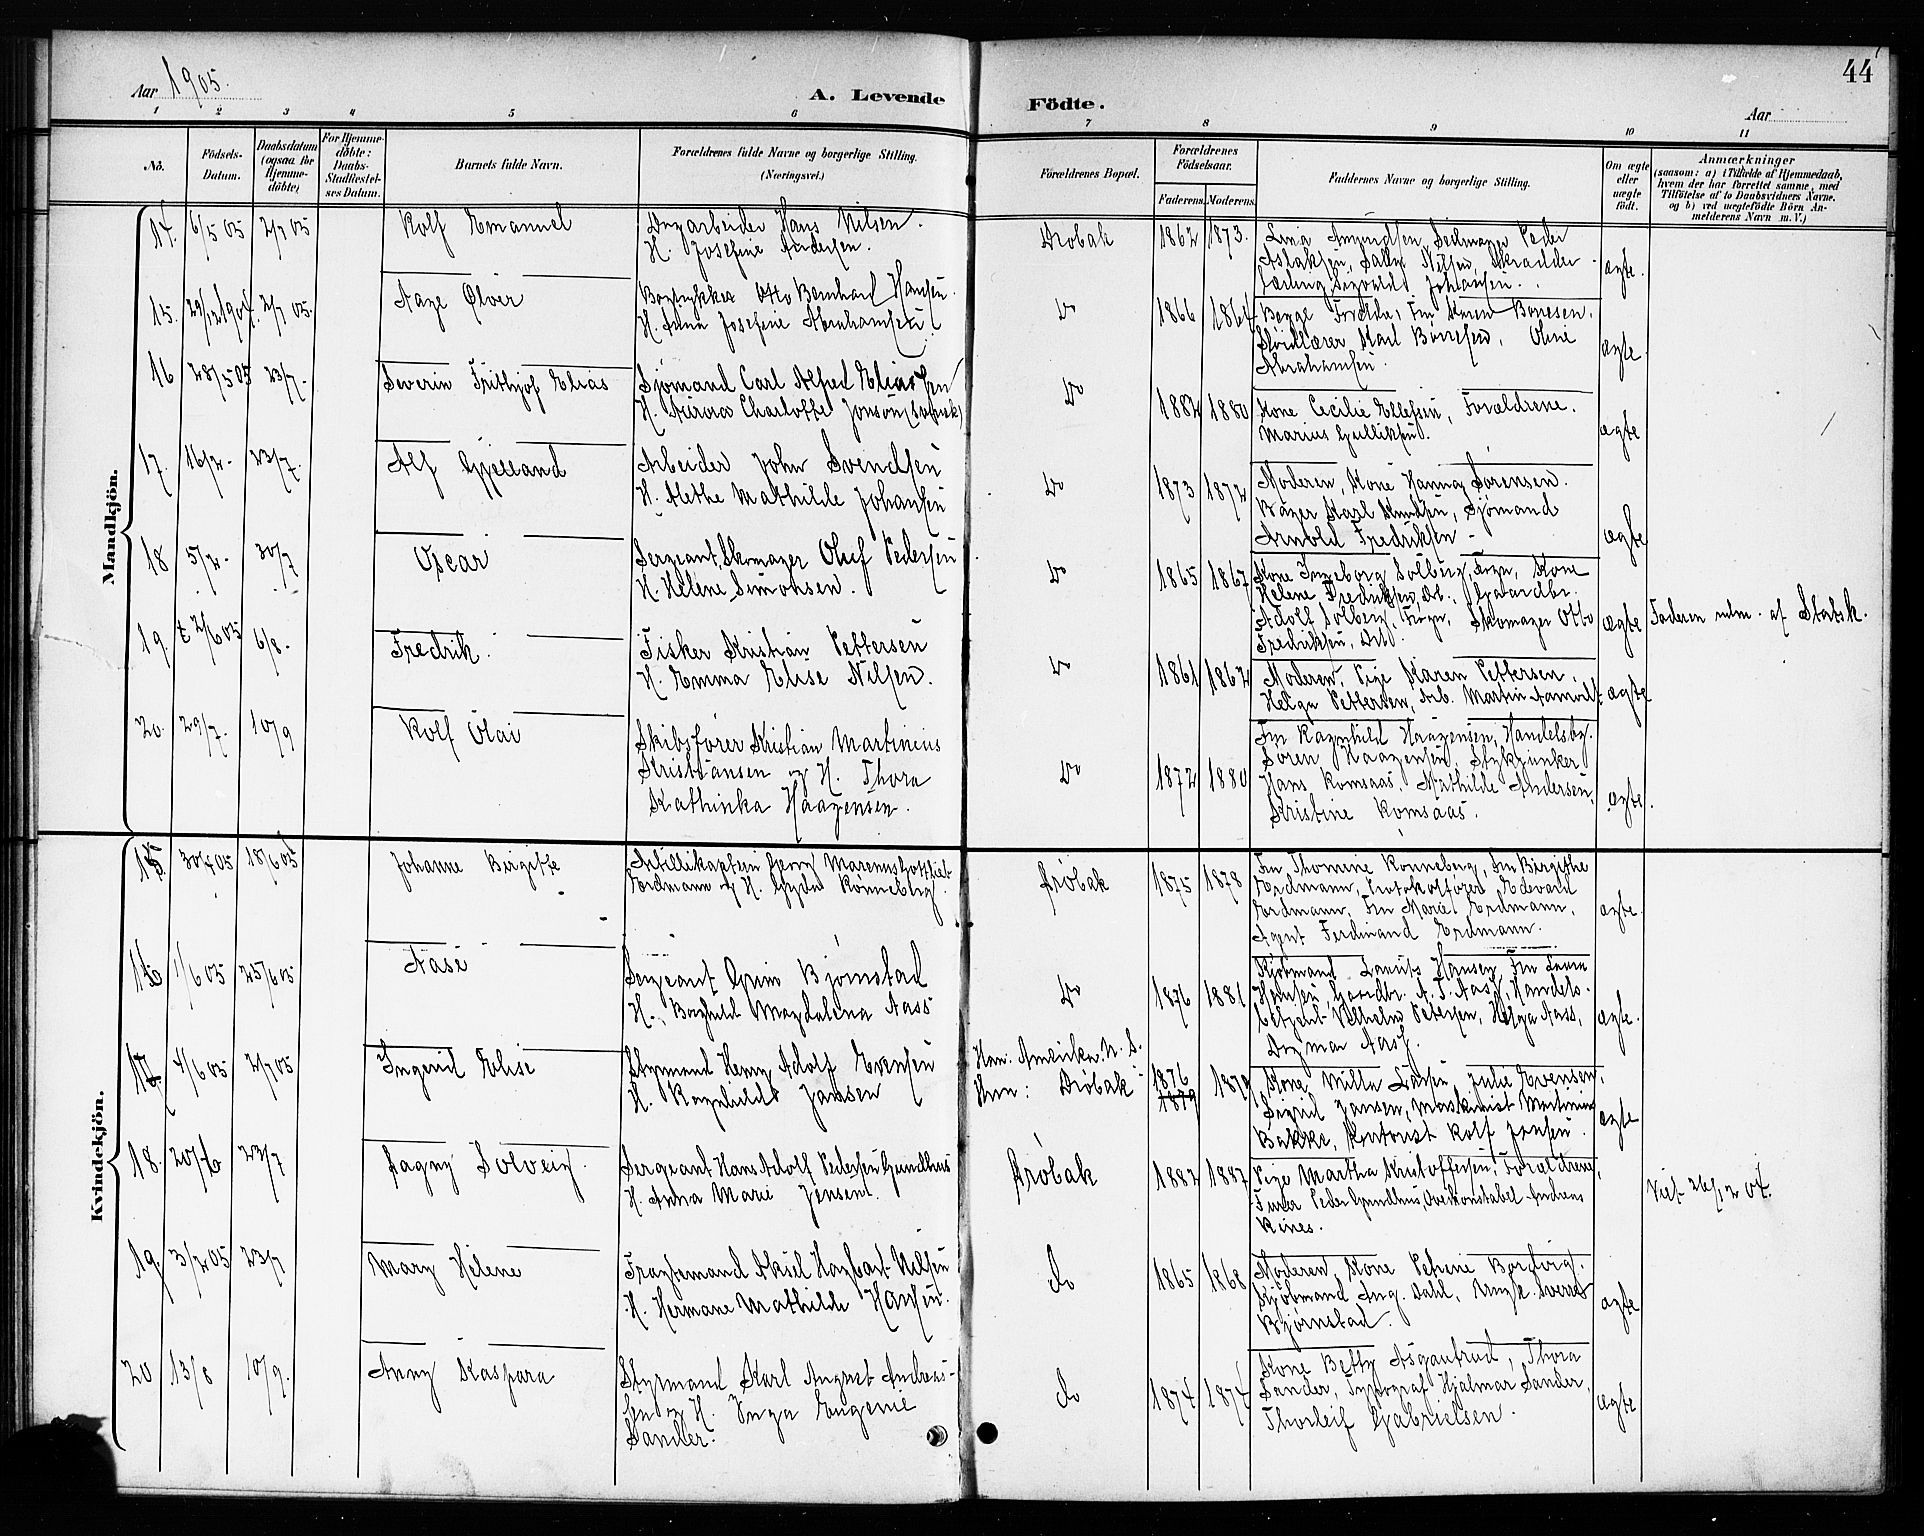 44
Aar 1905.
A. Levende Födte.
Aar
1 2 3 4 5 6 7 8 9 10 11
No.
Födsels-Datum.
Daabsdatum (ogsaa for Hjemme-döbte)
For Hjemme-döbte: Daabs-Stadfæstel-ses Datum.
Barnets fulde Navn.
Forældrenes fulde Navne og borgerlige Stilling. (Næringsvei.)
Forældrenes Bopæl.
Forældrenes Födselsaar.
Faderens. Moderens.
Faddernes Navne og borgerlige Stilling.
Om ægte eller uægte födt.
Anmærkninger
(saasom: a) i Tilfælde af Hjemmedaab,
hvem der har forrettet samme, med
Tilföielse af to Daabsvidners Navne,
og b) ved uægtefödte Börn An-
melderens Navn m. V.)
Mandkjön.
14. 6/5 05 2/7 05 Rolf Emanuel
Hans Nilsen.
H. Josefine Andersen.
Drøbak 1862 1873.
Lina Amundsen, Seilmager Peder
Aslaksen, Nilsen, Skrædder
Johansen.
ægte.
15. 29/12 1904. 2/7 05. Aage Olver
Bogtrykker Otto Bernhard Hansen.
H. Anna Josefine Abrahamsen.
Do 1866 1864
Begge Forældre, Fru Maren Børresen.
Karl Børresen, Oline
Abrahamsen.
ægte.
16 28/5 05 23/7- Severin Frithjof Elias
Sjømand Carl Alfred Eliassen
H. Aurora Charlotte Jonson
Do 1882 1880
Kone Cecilie Ellefsen, Forældrene.
Marius Gulliksen.
ægte
17. 16/2- 23/7. Alf Gjelland
Arbeider John Svendsen
H. Alethe Mathilde Johansen
Do 1873 1872
Moderen, Kone Hanna Sørensen.
Bager Karl Knudsen, Sjømand
Arnold Fredriksen -
ægte
18 5/2- 30/7 Oscar
Sergeant, Skomager Oluf Pedersen
H. Helene Simonsen.
Do 1865 1867
Kone Ingeborg Solberg, Frogn, Kone
Helene Fredriksen, Gaardbr.
Adolf Solberg, Frogn, Skomager Otto
Fredriksen,
ægte
Faderen udm. af Statsk.
19. 2/6 05 6/8- Fredrik.
Fisker Kristian Pettersen
H. Emma Elise Nilsen.
Do 1861 1862
Moderen, Pige Maren Pettersen.
Helga Pettersen, Arb. Martin
ægte
20. 29/7- 10/9 Rolf Olai
Skibsfører Kristian Martinius
Kristiansen og H. Thora
Kathinka Haagensen.
Do 1872 1880
Fru Ragnhild Haagensen, Handelsbg.
Søren Haagensen, Stykjunker
Hans Romsaas, Mathilde Andersen,
Kristine Romsaas.
ægte.
Kvindekjön.
15 30/4 05 18/6 05 Johanne Birgitte
Artillikaptein Georg Marenus Gottlieb
Erdmann og H. Gyda Ronneberg.
Drøbak 1875 1878
Fru Thomine Ronneberg, Fru Birgithe
Erdmann, Protokolfører Edevard
Erdmann, Fru Marie Erdmann,
Agent Ferdinand Erdmann.
ægte.
16 1/6 05 25/6 05 Aase
Sergeant Grim Bjørnstad
H. Borghild Magdalena Aass
Do 1876 1881
Kjøbmand Laurits Hansen, Fru Laura
Hansen, Gaardbr. A. T. Aass, Handels-
betjent Vilhelm Petersen, Helga Aass,
Dagmar Aass.
ægte.
17 4/6 05 2/7 05 Ingerid Elise
Styrmand Henry Adolf Evensen
H. Ragnhild Jansen
Han: Amerika N. S.
Hun: Drøbak
1876 1879 1879
Kone Milla Larsen, Julie Evensen,
Sigrid Jansen, Maskinist Martinius
Bakke, Kontorist Rolf Jansen.
ægte
18. 20/6 23/7 Dagny Solveig.
Sergeant Hans Adolf Pedersen Grindhus
H. Anna Marie Jensen.
Drøbak 1882 1887
Pige Martha Kristoffersen, Forældrene,
Peder Grindhus, Overkonstabel Andreas
Rines.
Viet 26/12 04.
19. 3/2 05 23/7 Mary Helene
Fragtemand Aksel Hagbart Nilsen
H. Hermane Mathilde Hansen.
Do 1865 1868
Moderen, Kone Petrine
Kjøbmand Aug. Dahl, Sverre
Bjørnstad.
ægte
20 13/8 10/9. Anny Kaspara
Styrmand Karl August Andreas-
sen og H. Inga Eugenie
Sander.
Do 1874 1874
Kone Betty Asgautrud, Thora
Sander, Typograf Hjalmar Sander,
Thorleif Gabrielsen.
ægte